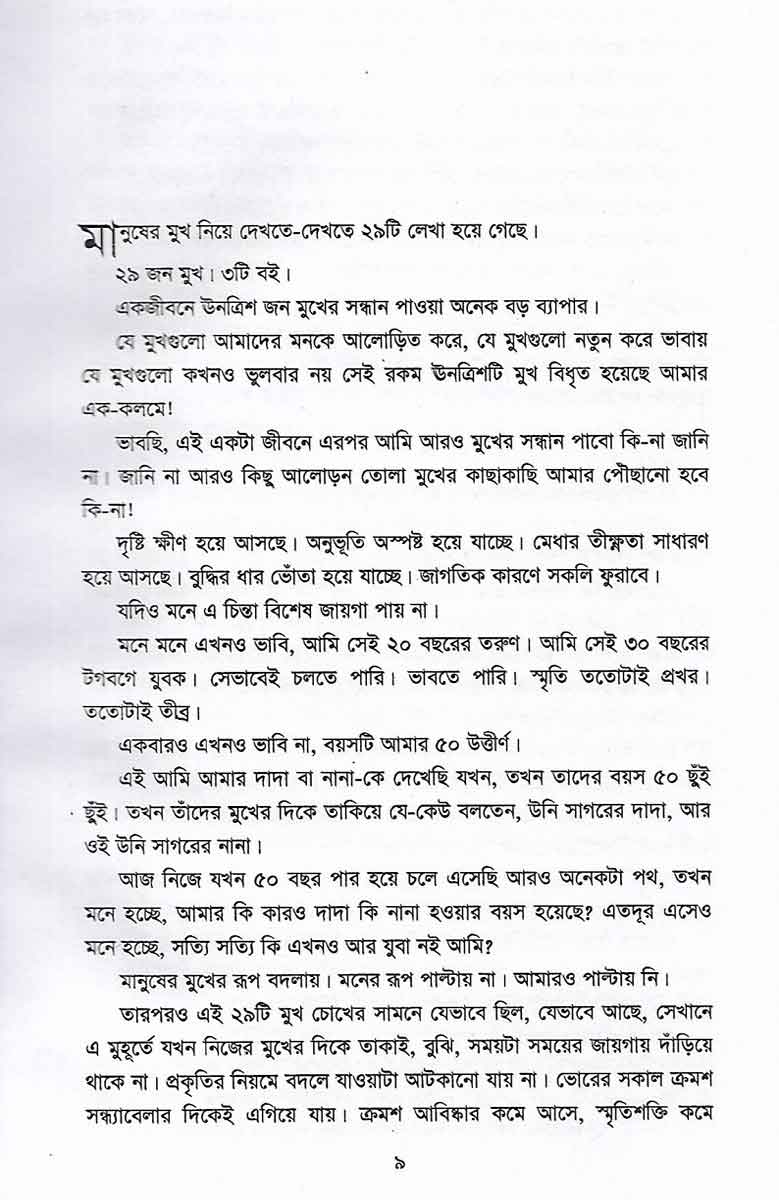 মানুষের মুখ নিয়ে দেখতে-দেখতে ২৯টি লেখা হয়ে গেছে।
২৯ জন মুখ। ৩টি বই।
একজীবনে ঊনত্রিশ জন মুখের সন্ধান পাওয়া অনেক বড় ব্যাপার।
যে মুখগুলো আমাদের মনকে আলোড়িত করে, যে মুখগুলো নতুন করে ভাবায়
যে মুখগুলো কখনও ভুলবার নয় সেই রকম ঊনত্রিশটি মুখ বিধৃত হয়েছে আমার
এক-কলমে!
ভাবছি, এই একটা জীবনে এরপর আমি আরও মুখের সন্ধান পাবো কি-না জানি
না। জানি না আরও কিছু আলোড়ন তোলা মুখের কাছাকাছি আমার পৌঁছানো হবে
কি-না!
দৃষ্টি ক্ষীণ হয়ে আসছে। অনুভূতি অস্পষ্ট হয়ে যাচ্ছে। মেধার তীক্ষ্ণতা সাধারণ
হয়ে আসছে। বুদ্ধির ধার ভোঁতা হয়ে যাচ্ছে। জাগতিক কারণে সকলি ফুরাবে।
যদিও মনে এ চিন্তা বিশেষ জায়গা পায় না।
মনে মনে এখনও ভাবি, আমি সেই ২০ বছরের তরুণ। আমি সেই ৩০ বছরের
টগবগে যুবক। সেভাবেই চলতে পারি। ভাবতে পারি। স্মৃতি ততোটাই প্রখর।
ততোটাই তীব্র।
একবারও এখনও ভাবি না, বয়সটি আমার ৫০ উত্তীর্ণ।
এই আমি আমার দাদা বা নানা-কে দেখেছি যখন, তখন তাদের বয়স ৫০ ছুঁই
ছুঁই। তখন তাঁদের মুখের দিকে তাকিয়ে যে-কেউ বলতেন, উনি সাগরের দাদা, আর
ওই উনি সাগরের নানা।
আজ নিজে যখন ৫০ বছর পার হয়ে চলে এসেছি আরও অনেকটা পথ, তখন
মনে হচ্ছে, আমার কি কারও দাদা কি নানা হওয়ার বয়স হয়েছে? এতদূর এসেও
মনে হচ্ছে, সত্যি সত্যি কি এখনও আর যুবা নই আমি?
মানুষের মুখের রূপ বদলায়। মনের রূপ পাল্টায় না। আমারও পাল্টায় নি।
তারপরও এই ২৯টি মুখ চোখের সামনে যেভাবে ছিল, যেভাবে আছে, সেখানে
এ মুহূর্তে যখন নিজের মুখের দিকে তাকাই, বুঝি, সময়টা সময়ের জায়গায় দাঁড়িয়ে
থাকে না। প্রকৃতির নিয়মে বদলে যাওয়াটা আটকানো যায় না। ভোরের সকাল ক্রমশ
সন্ধ্যাবেলার দিকেই এগিয়ে যায়। ক্রমশ আবিষ্কার কমে আসে, স্মৃতিশক্তি কমে
৯